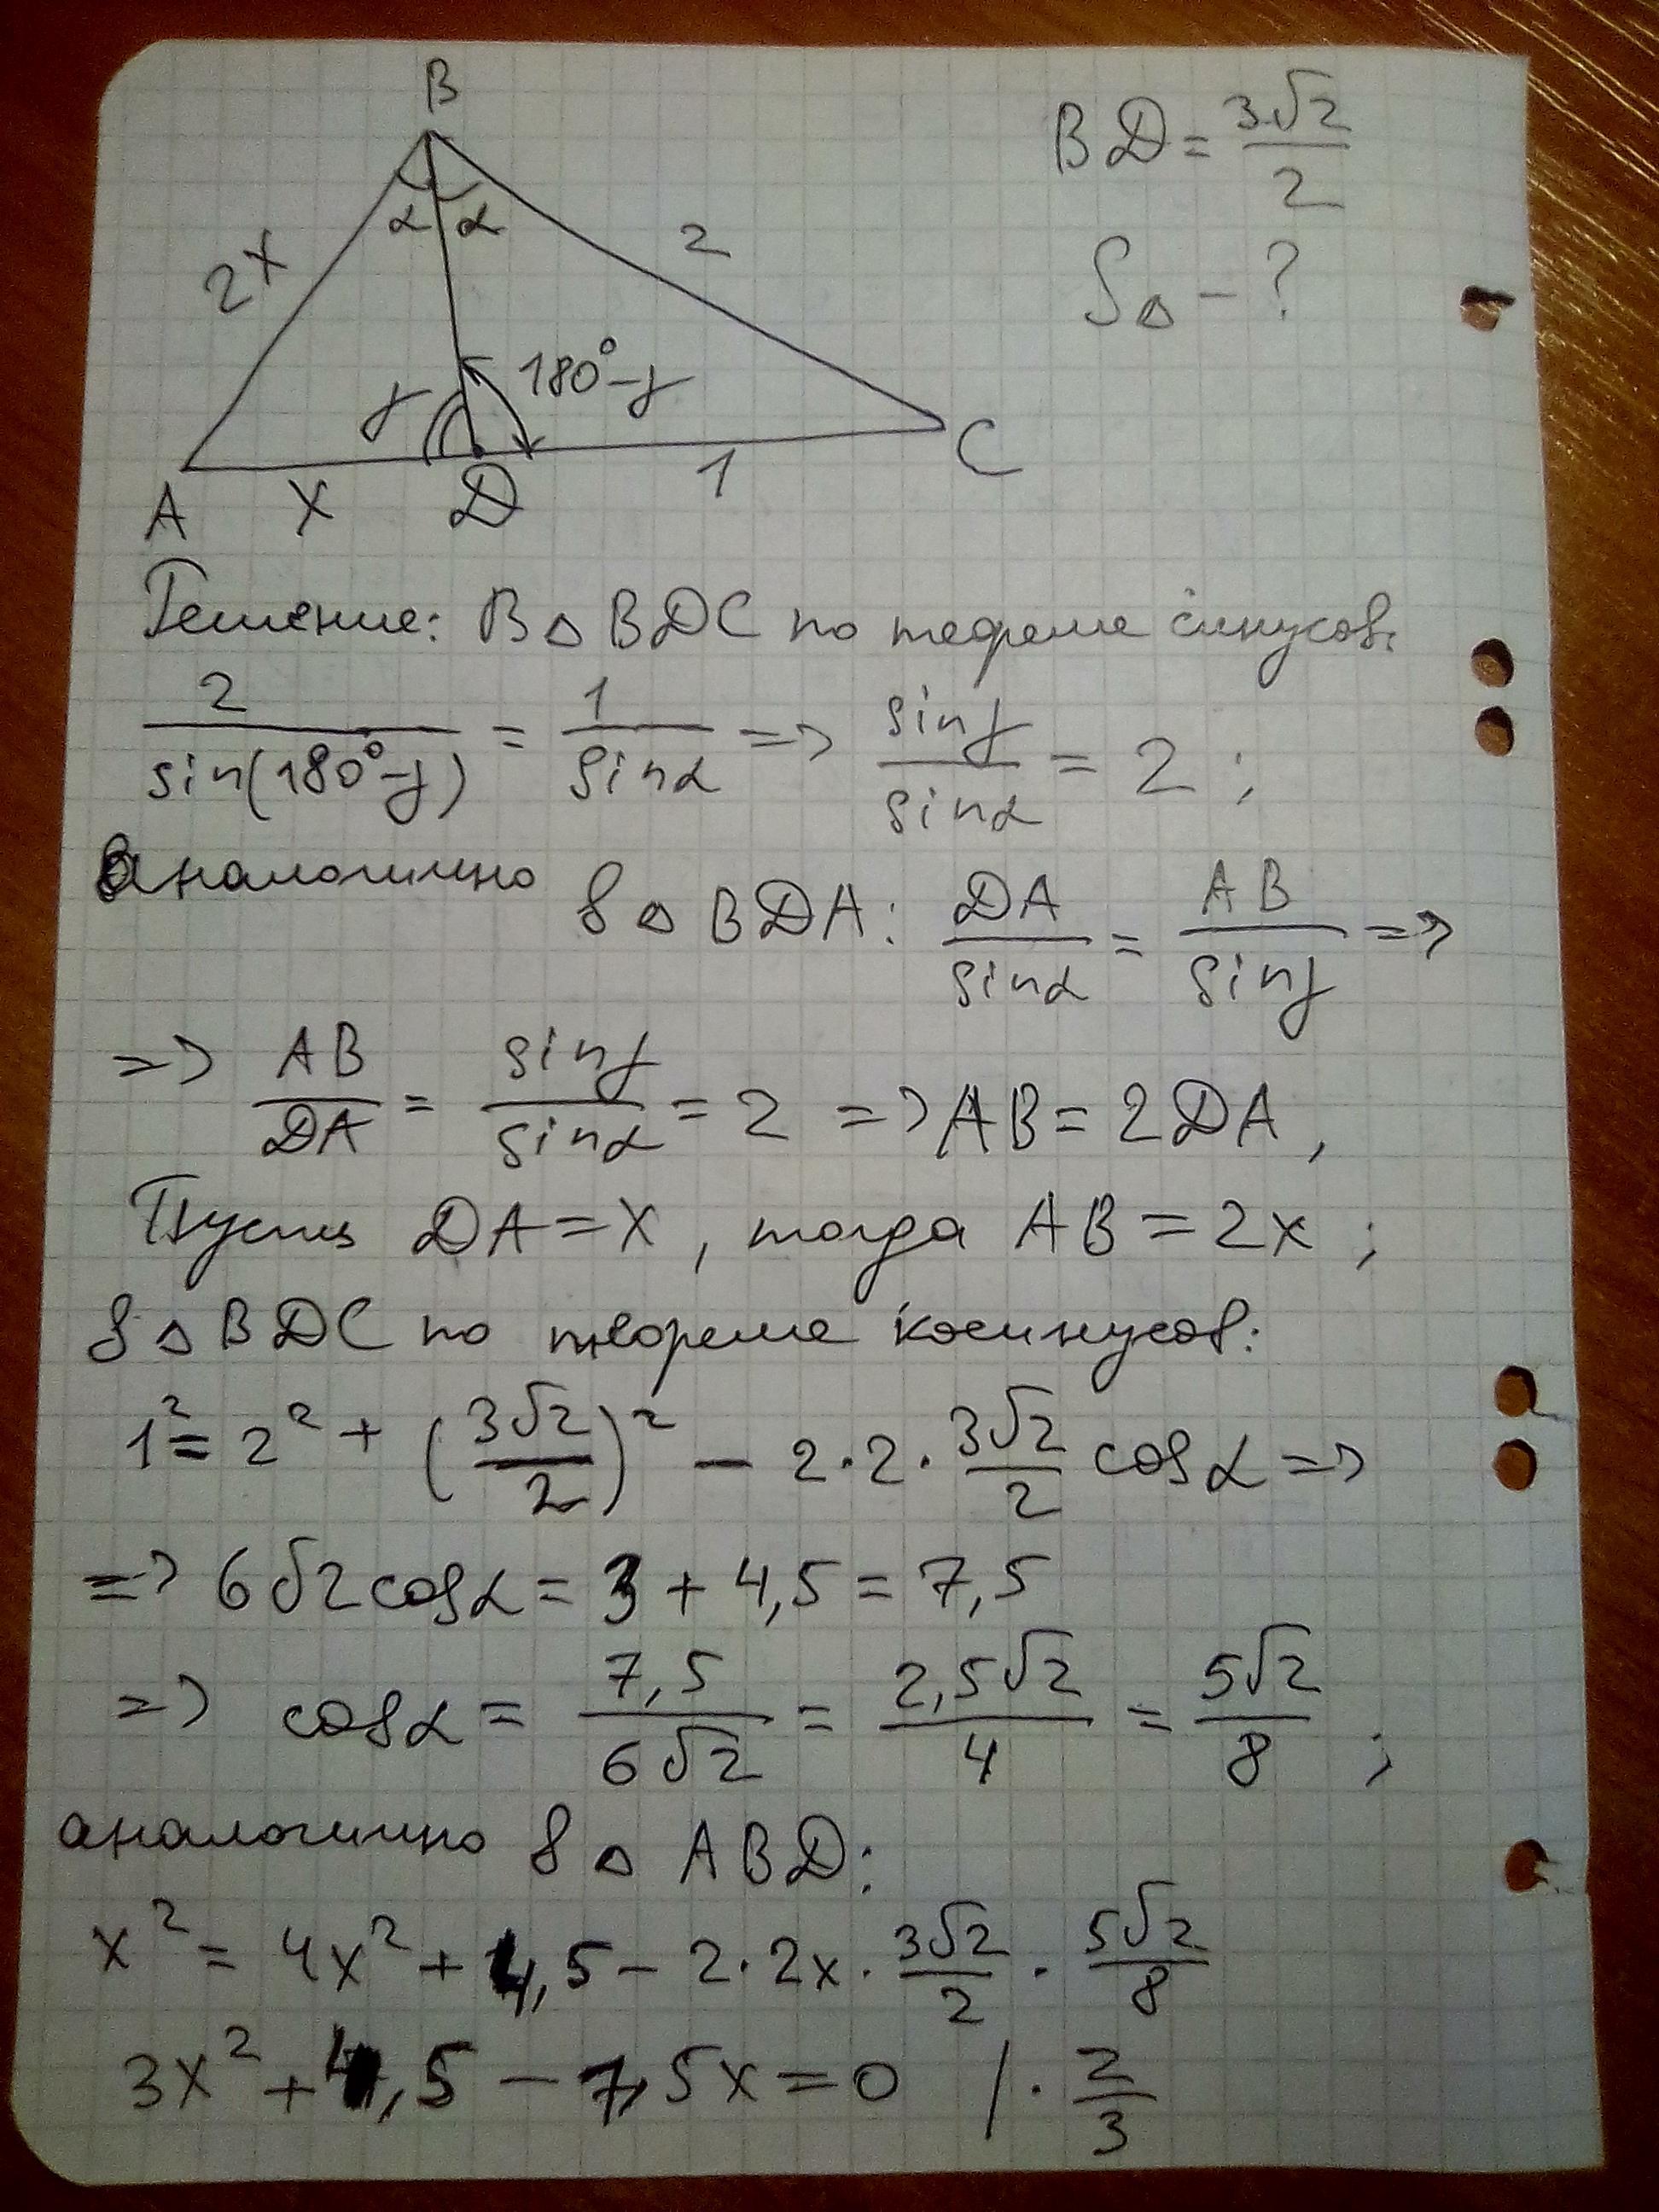 B
BD = 3√2/2
α α
2x
2
S△ - ?
γ
180°-γ
A
x
D
1
C
Решение: В △ BDC по теореме синусов:
2/sin(180°-γ) = 1/sinα => sinγ/sinα = 2 ;
аналогично в △ BDA: DA/sinα = AB/sinγ =>
=> AB/DA = sinγ/sinα = 2 => AB = 2DA,
Пусть DA = x, тогда AB = 2x ;
в △ BDC по теореме косинусов:
1² = 2² + (3√2/2)² - 2·2·3√2/2 cosα =>
=> 6√2 cosα = 3 + 4,5 = 7,5
=> cosα = 7,5/6√2 = 2,5√2/4 = 5√2/8 ;
аналогично в △ ABD:
x² = 4x² + 4,5 - 2·2x·3√2/2·5√2/8
3x² + 4,5 - 7,5x = 0 /·2/3